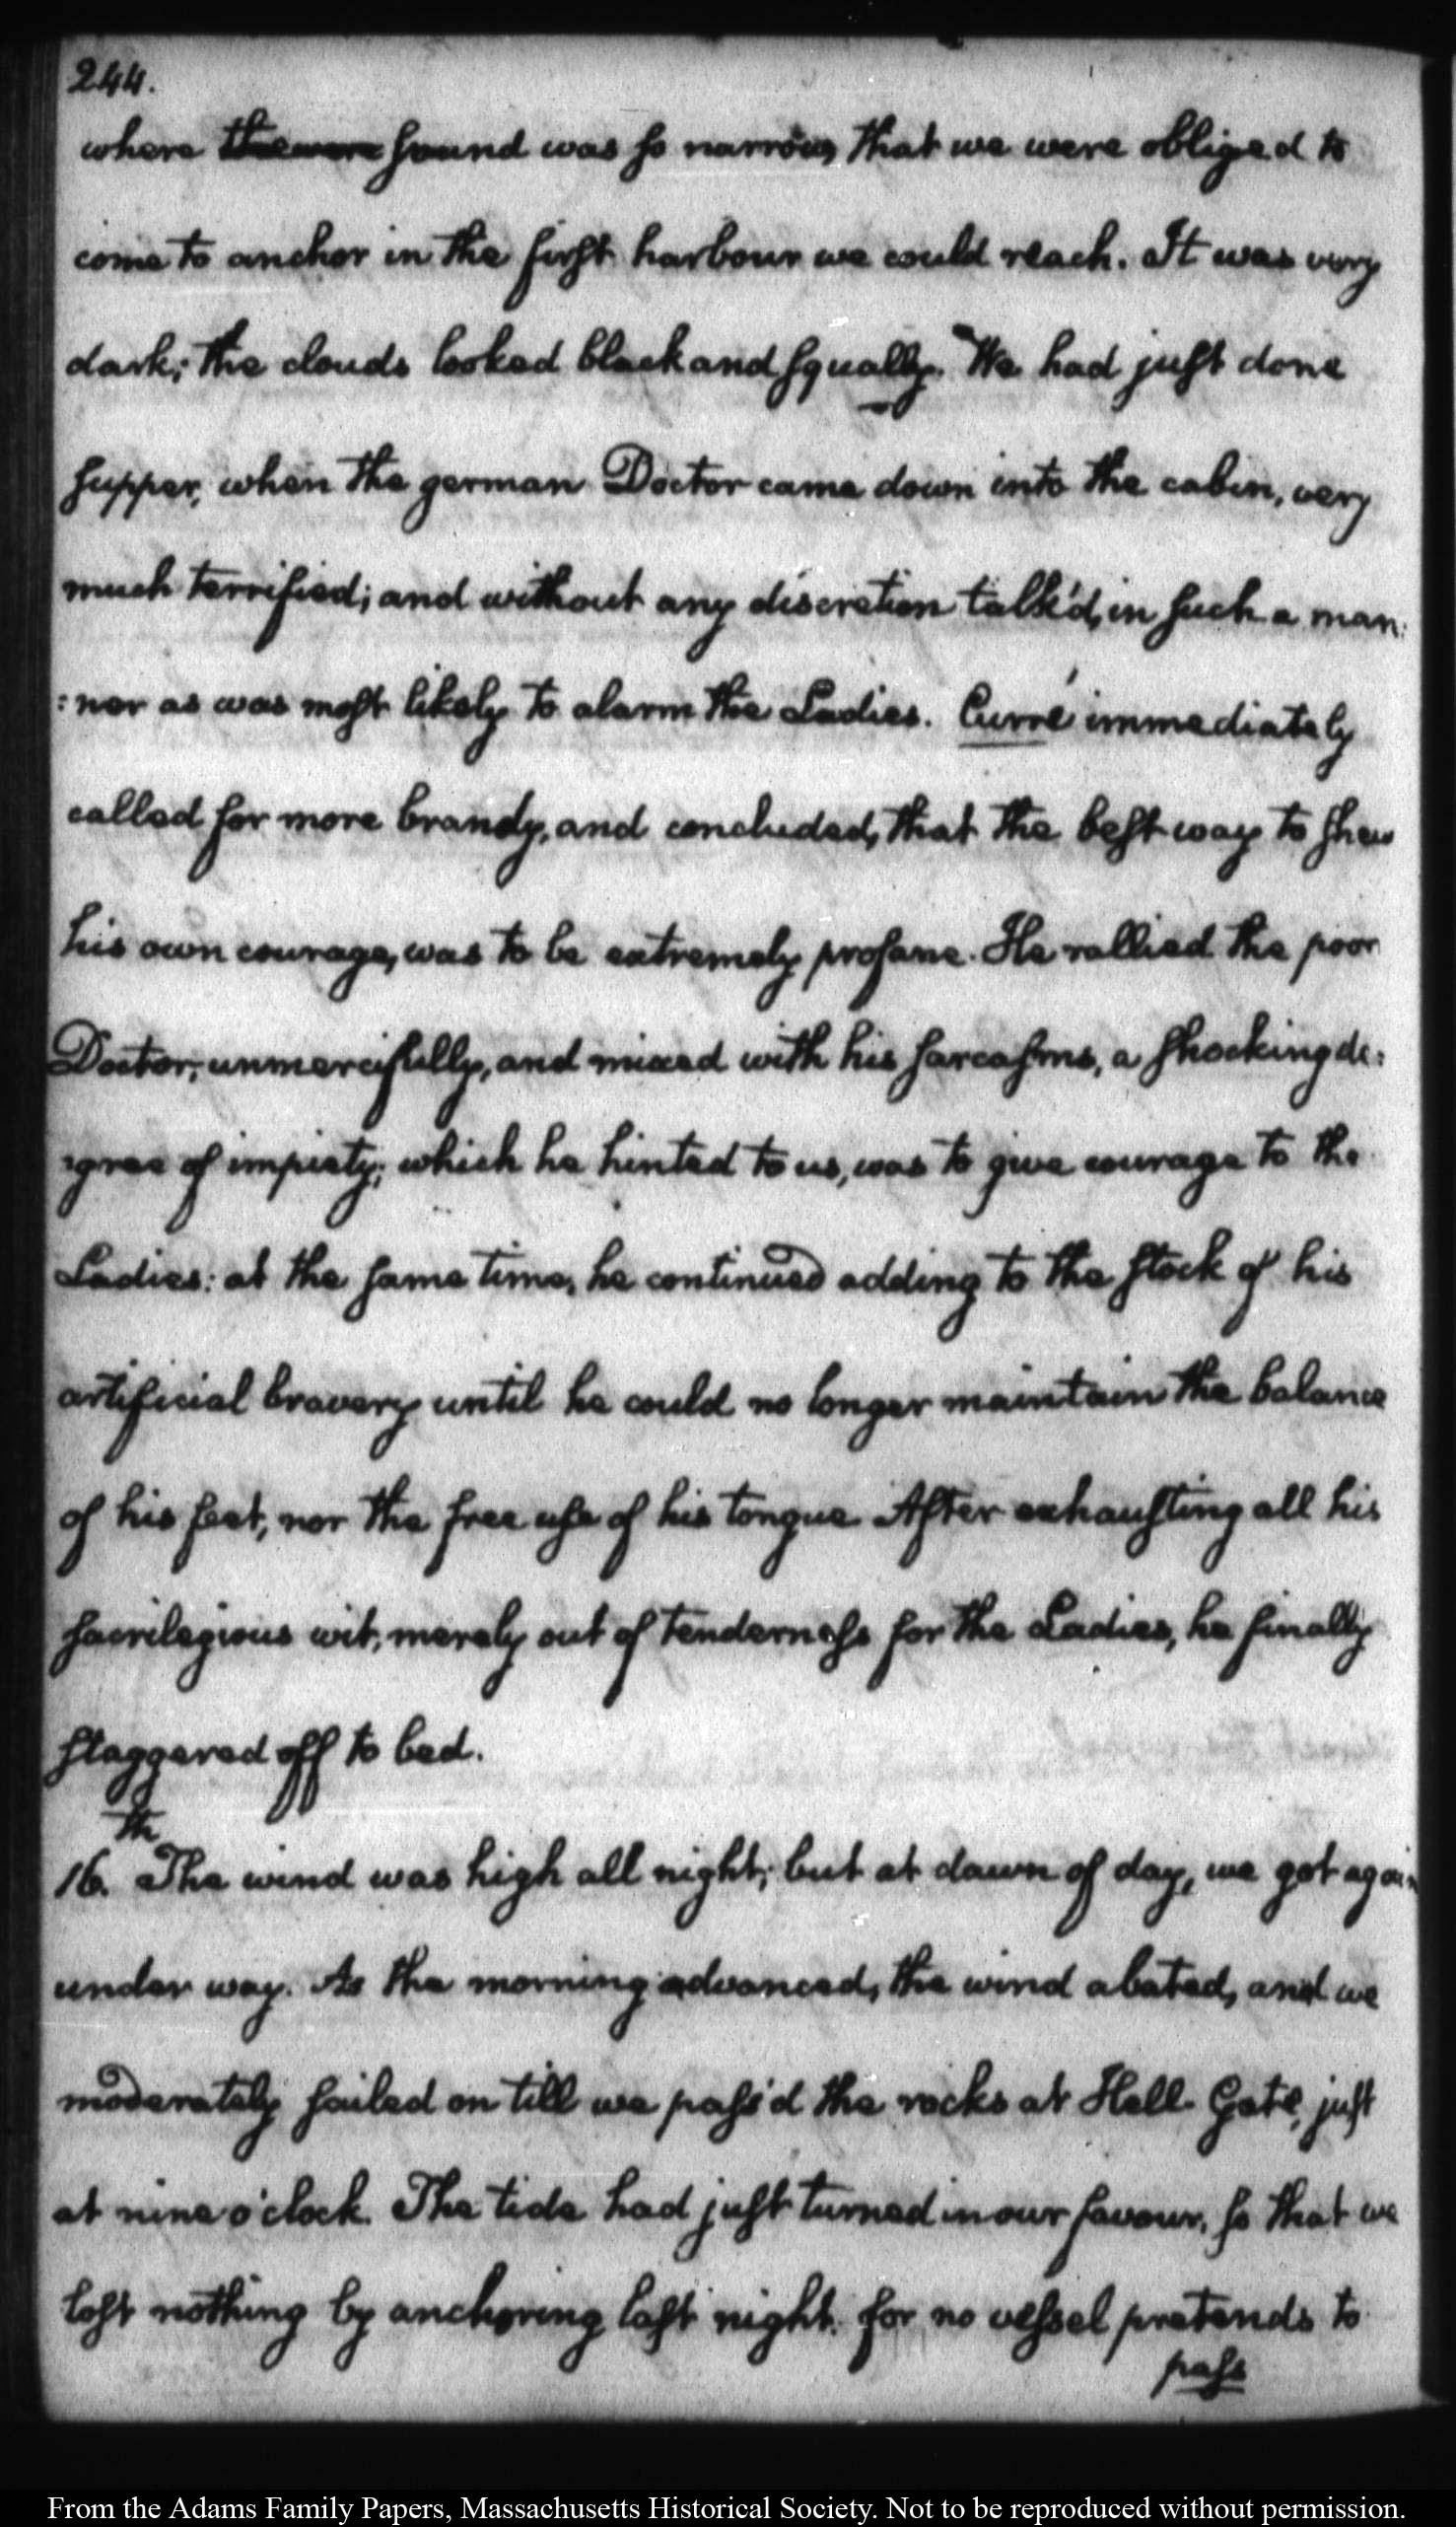 244.
where sound was so narrow, that we were obliged to
come to anchor in the first harbour we could reach. It was very
dark; the clouds looked black and squally. We had just done
supper, when the german Doctor came down into the cabin, very
much terrified; and without any discretion talk'd, in such a man:
:ner as was most likely to alarm the Ladies. Curré immediately
called for more brandy, and concluded, that the best way to shew
his own courage, was to be extremely profane. He rallied the poor
Doctor, unmercifully, and mixed with his sarcasms, a shocking de:
:gree of impiety; which he hinted to us, was to give courage to the
Ladies: at the same time, he continued adding to the stock of his
artificial bravery until he could no longer maintain the balance
of his feet, nor the free use of his tongue. After exhausting all his
sacrilegious wit, merely out of tenderness for the Ladies, he finally
staggered off to bed.
16.th The wind was high all night; but at dawn of day, we got again
under way. As the morning advanced, the wind abated, and we
moderately sailed on till we pass'd the rocks at Hell-Gate, just
at nine o'clock. The tide had just turned in our favour, so that we
lost nothing by anchoring last night: for no vessel pretends to
pass
From the Adams Family Papers, Massachusetts Historical Society. Not to be reproduced without permission.